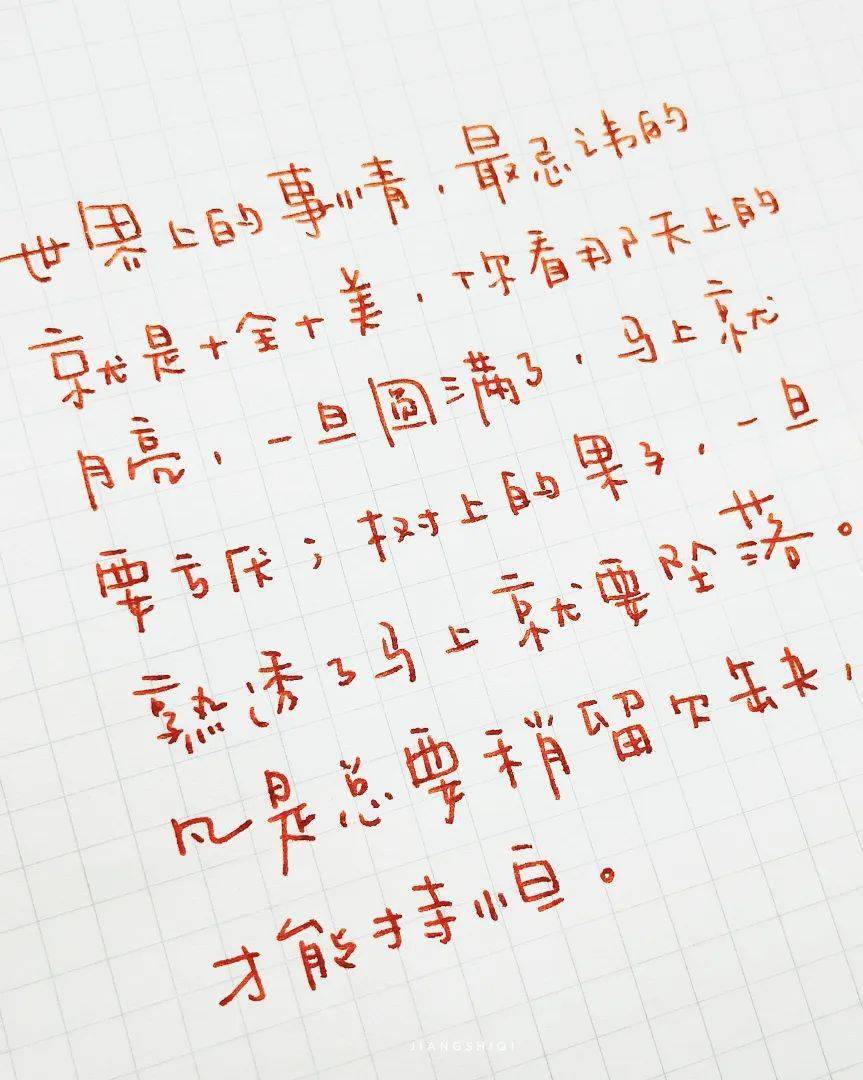 世界上的事情，最忌讳的
就是十全十美，你看那天上的
月亮，一旦圆满了，马上就
要亏厌；树上的果子，一旦
熟透了马上就要坠落。
凡是总要稍留欠缺，
才能持恒。
JIANGSHIQI